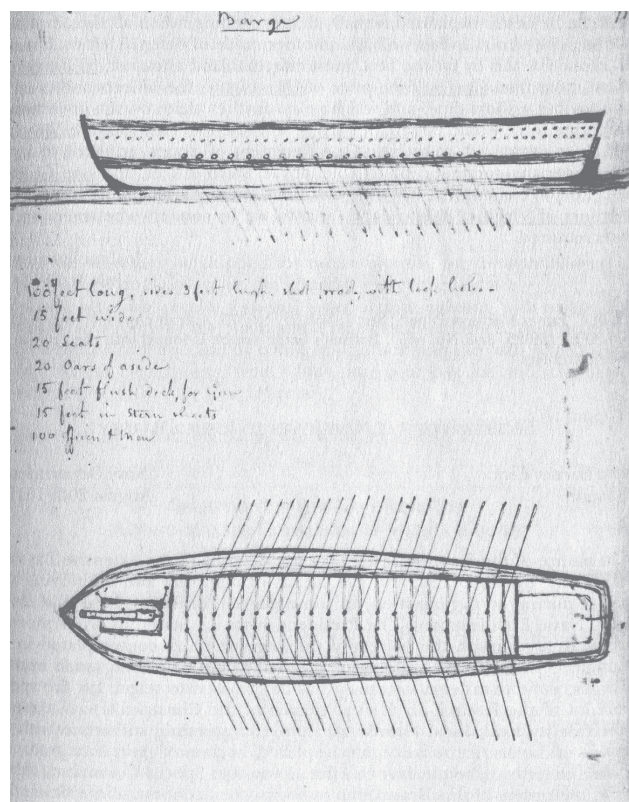 Barge
100 feet long, sides 3 feet high, shot proof, with loop holes
15 feet wide
20 Seats
20 Oars of aside
15 feet flush deck, for Gun
15 feet in Stern sheets
100 Officers & Men